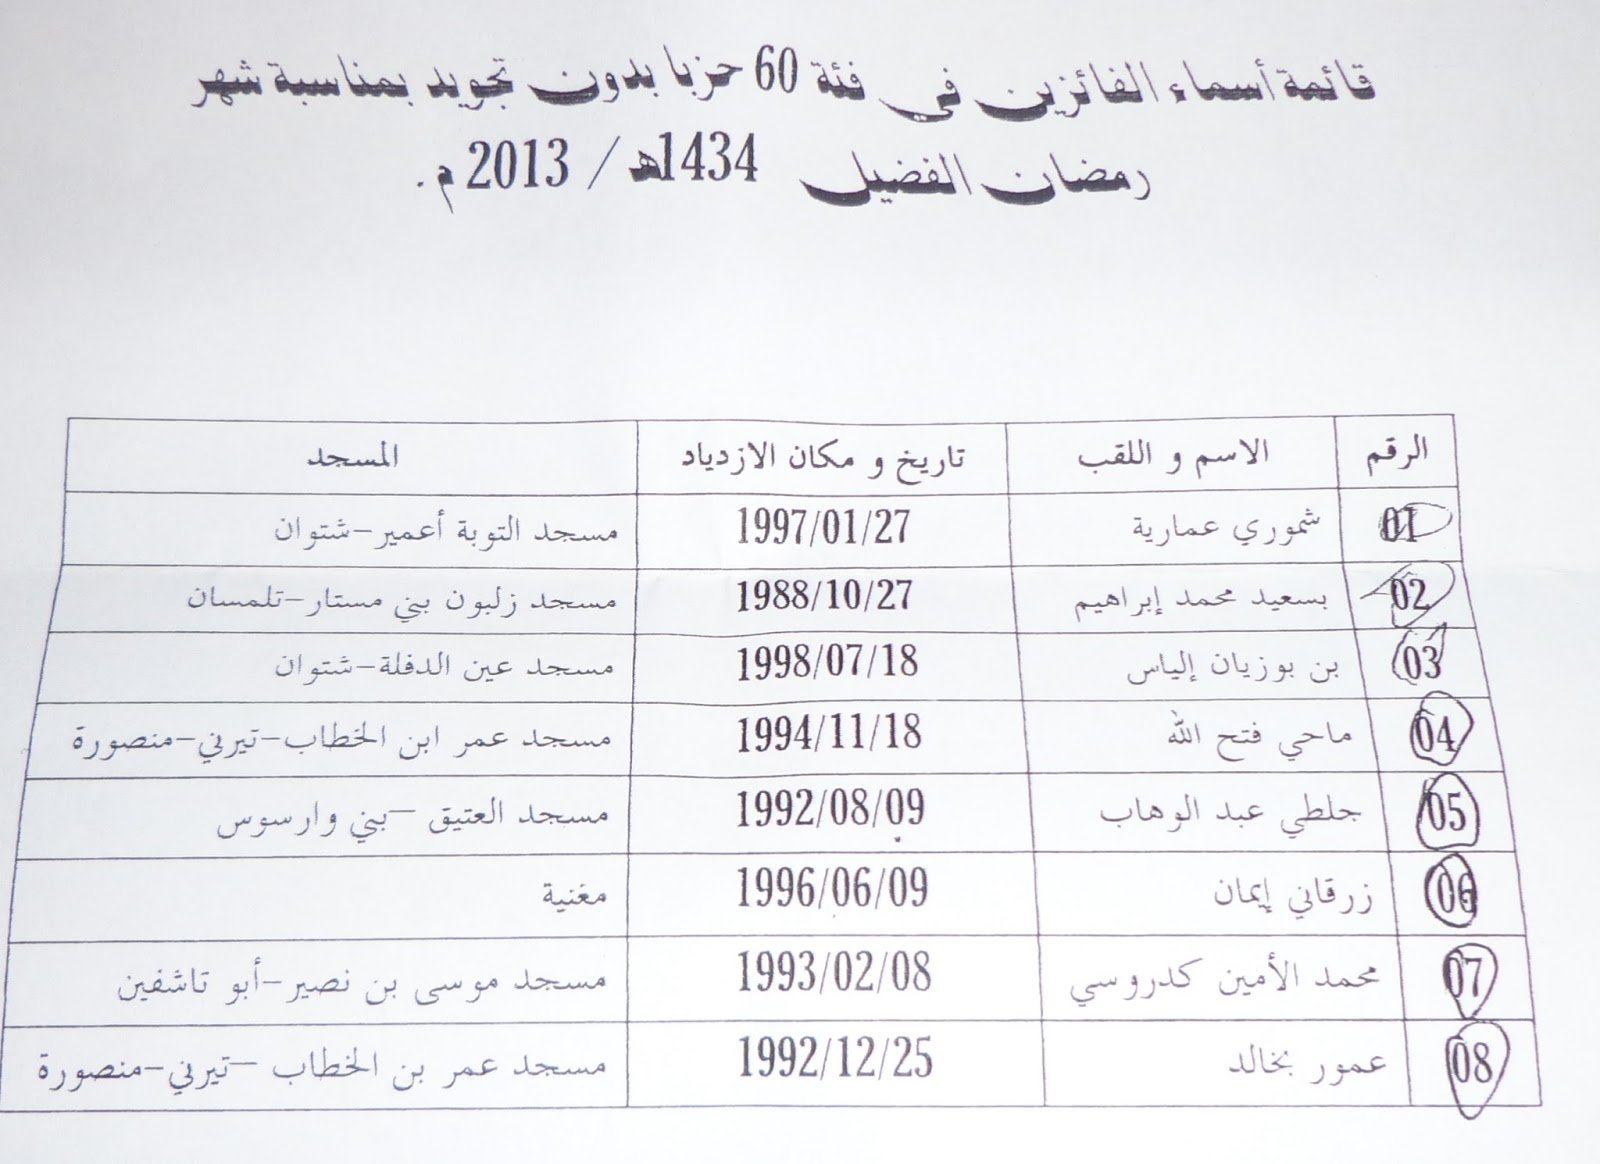 قائمة أسماء الفائزين في فئة 60 حزبا بدون تجويد بمناسبة شهر
رمضان الفضيل 1434هـ / 2013 م.
الرقم الاسم و اللقب تاريخ و مكان الازدياد المسجد
01 شموري عمارية 1997/01/27 مسجد التوبة أعمير-شتوان
02 بسعيد محمد إبراهيم 1988/10/27 مسجد زلبون بني مستار-تلمسان
03 بن بوزيان إلياس 1998/07/18 مسجد عين الدفلة-شتوان
04 ماحي فتح الله 1994/11/18 مسجد عمر ابن الخطاب-تيرني-منصورة
05 جلطي عبد الوهاب 1992/08/09 مسجد العتيق -بني وارسوس
06 زرقاني إيمان 1996/06/09 مغنية
07 محمد الأمين كدروسي 1993/02/08 مسجد موسى بن نصير-أبو تاشفين
08 عمور بخالد 1992/12/25 مسجد عمر بن الخطاب -تيرني-منصورة